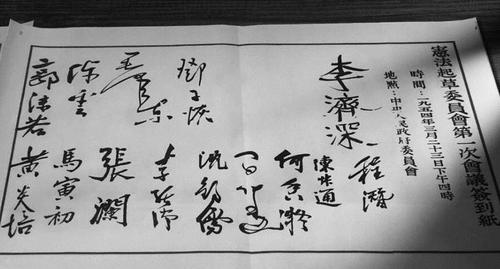 憲法起草委員會第一次會議簽到紙
時間:一九五四年三月二十三日下午四時
地點:中央人民政府委員會
程潛
李濟深
陳叔通
何香凝
沈鈞儒
鄧子恢
毛澤東
張瀾
陳雲
馬寅初
郭沫若
黃炎培